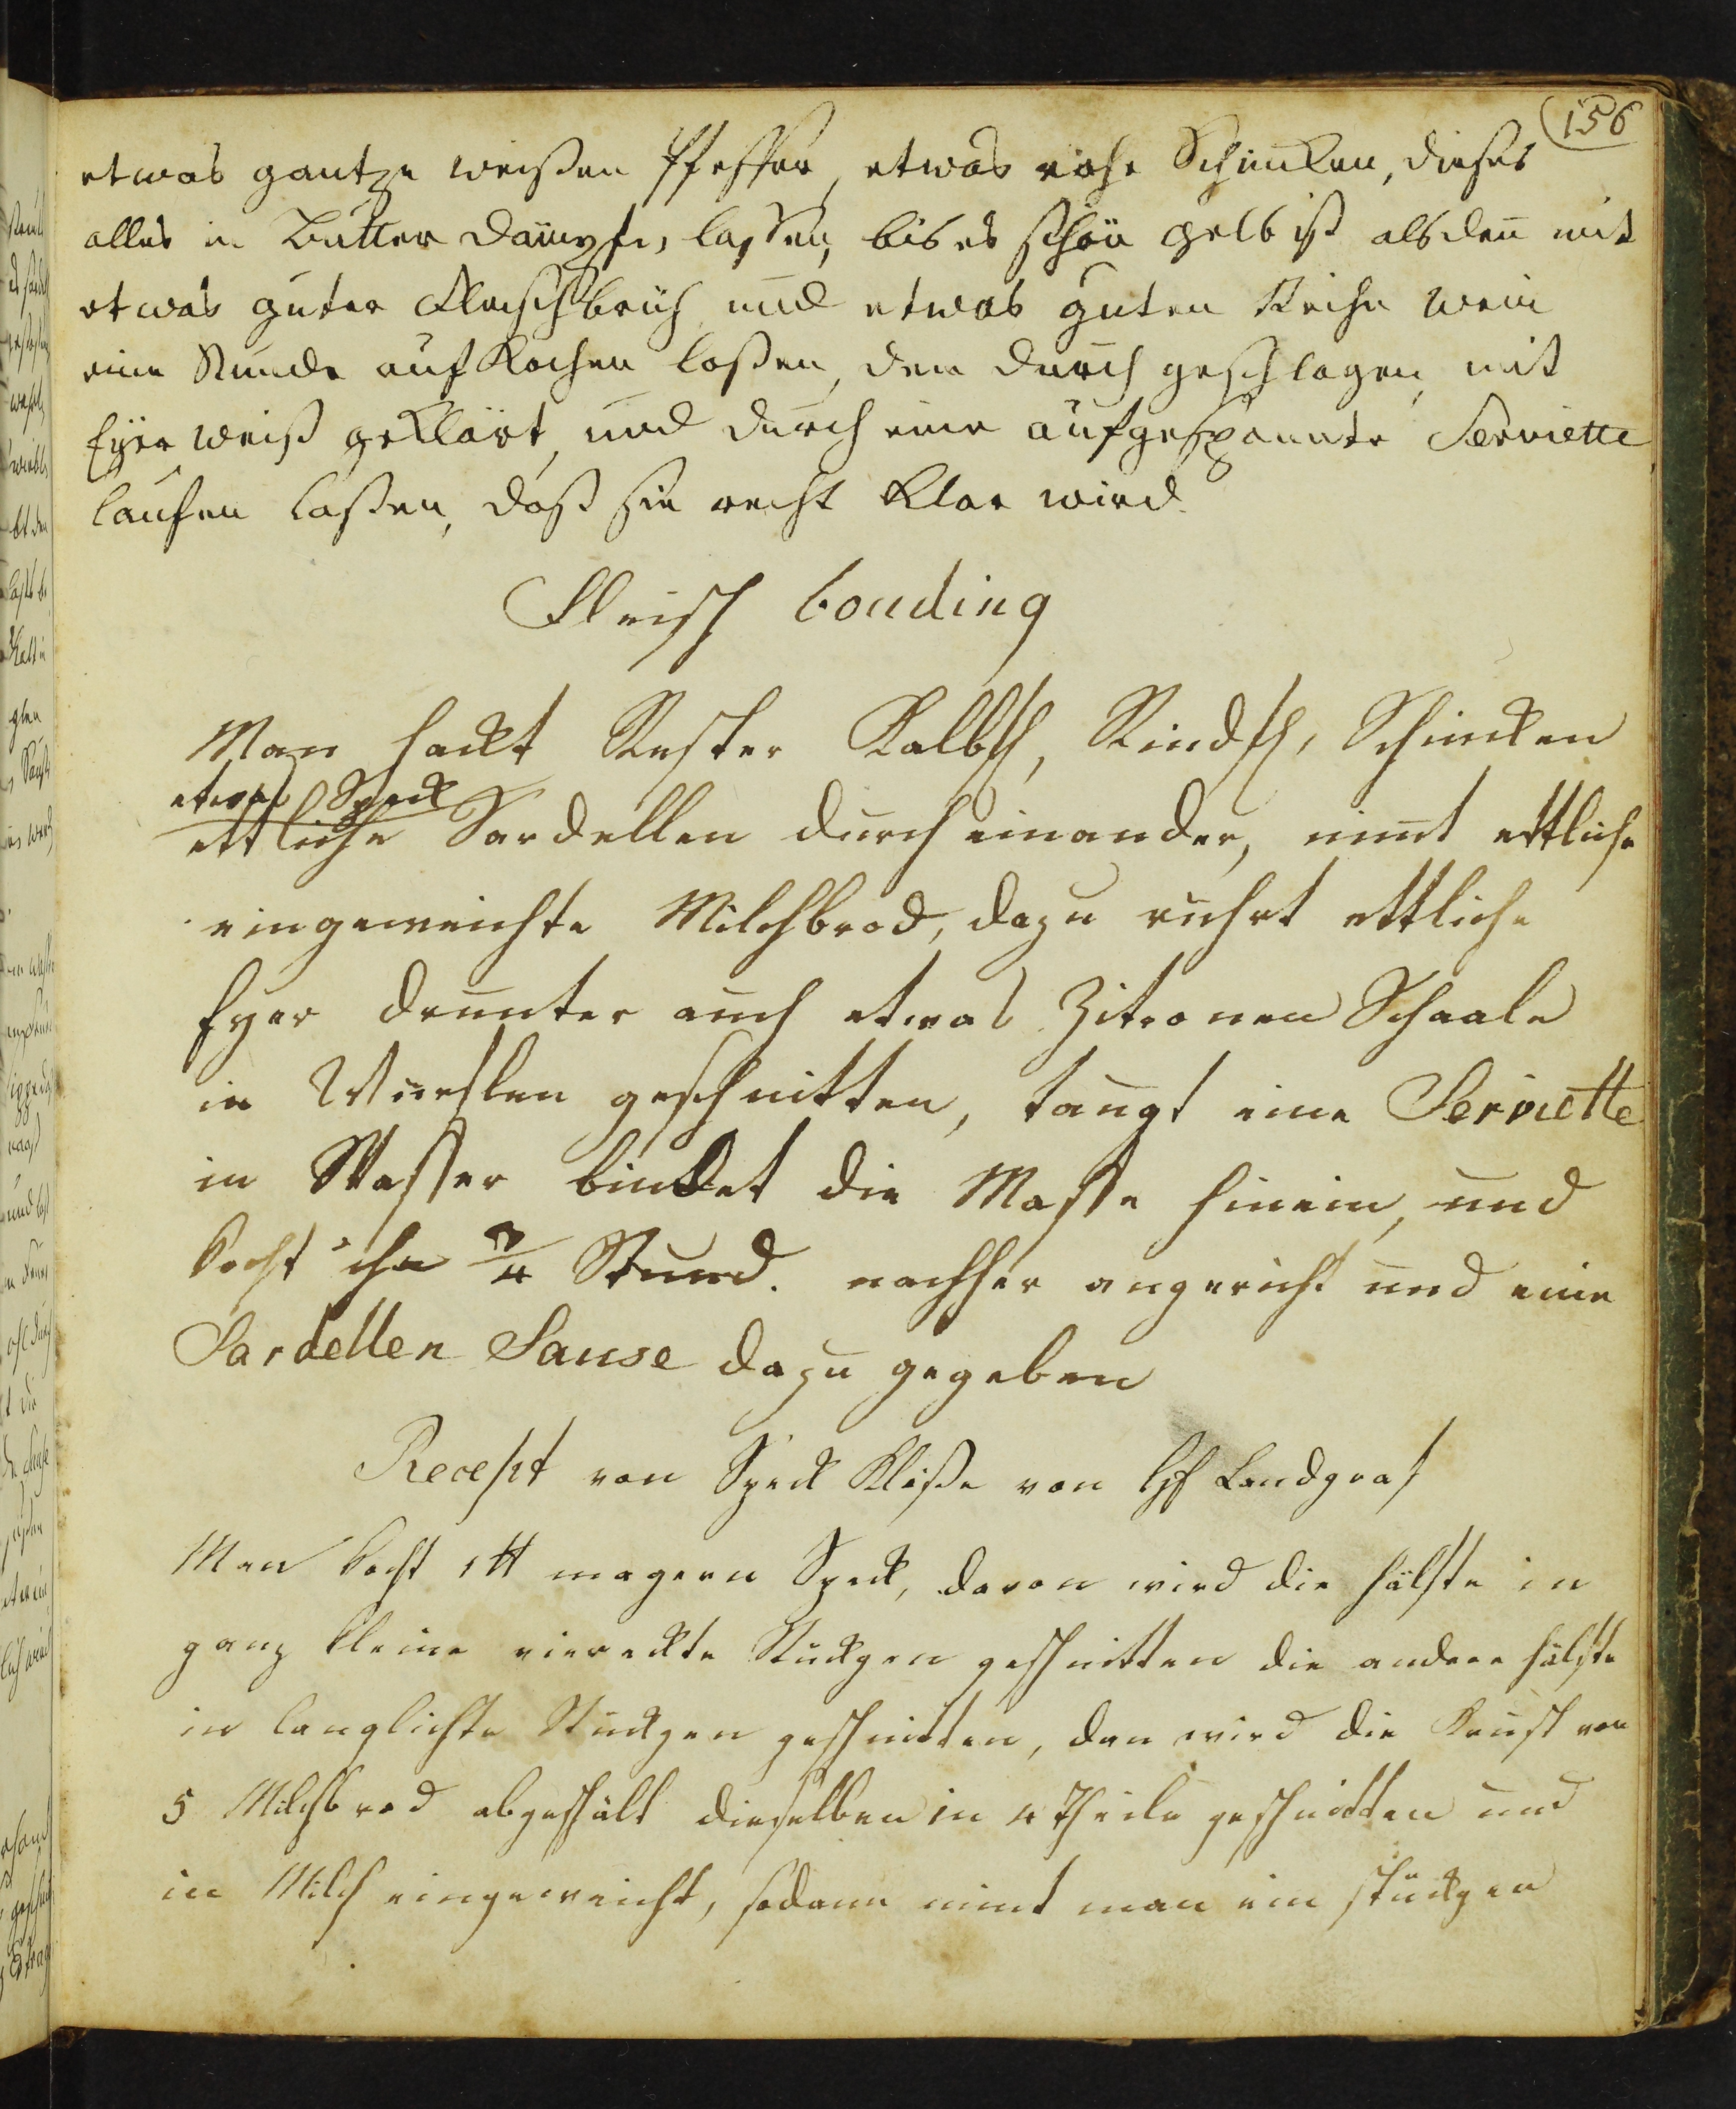 156
etwas gantze weißen Pfeffer, etwas rohe Schincken, dieses
alles in Butter dämpfen lassen, bis es schön gelb ist alsden̄ mit
etwas guter Fleischbrüh und etwas guten Reihn wein
eine Stunde aufkochen laßen, den durch geschlagen, mit
Eÿer weiß geklärt, und durch eine aufgespannte Serviette
laufen laßen, daß sie recht klar wird.
Fleisch bouding
Man hackt Rester Kalbfl, Rindfl, Schincken
etwas Speck
ettliche Sardellen durch einander, nim̄t ettliche
eingeweichte Milchbrod, dazu rührt ettliche
Eyer drunter auch etwas Zitronen Schaale
in Würflen geschnitten, taugt eine Serviette
in Wasser bindet die Masse hinein, und
kocht ihn 3/4 Stund. nachher angericht und eine
Sardellen Sause dazu gegeben
Recept von Speck Klöße von Landgraf
Man kocht 1 ℔ magern Speck, davon wird die hälfte in
ganz kleine viereckte Stückgen geschnitten die andere hälfte
in länglichte Stückgen geschnitten, dan wird die Krust von
5 Milchbrod abgeschält dieselben in 4 Theile geschnitten und
in Milch eingeweicht, sodann nimt man ein stückgen